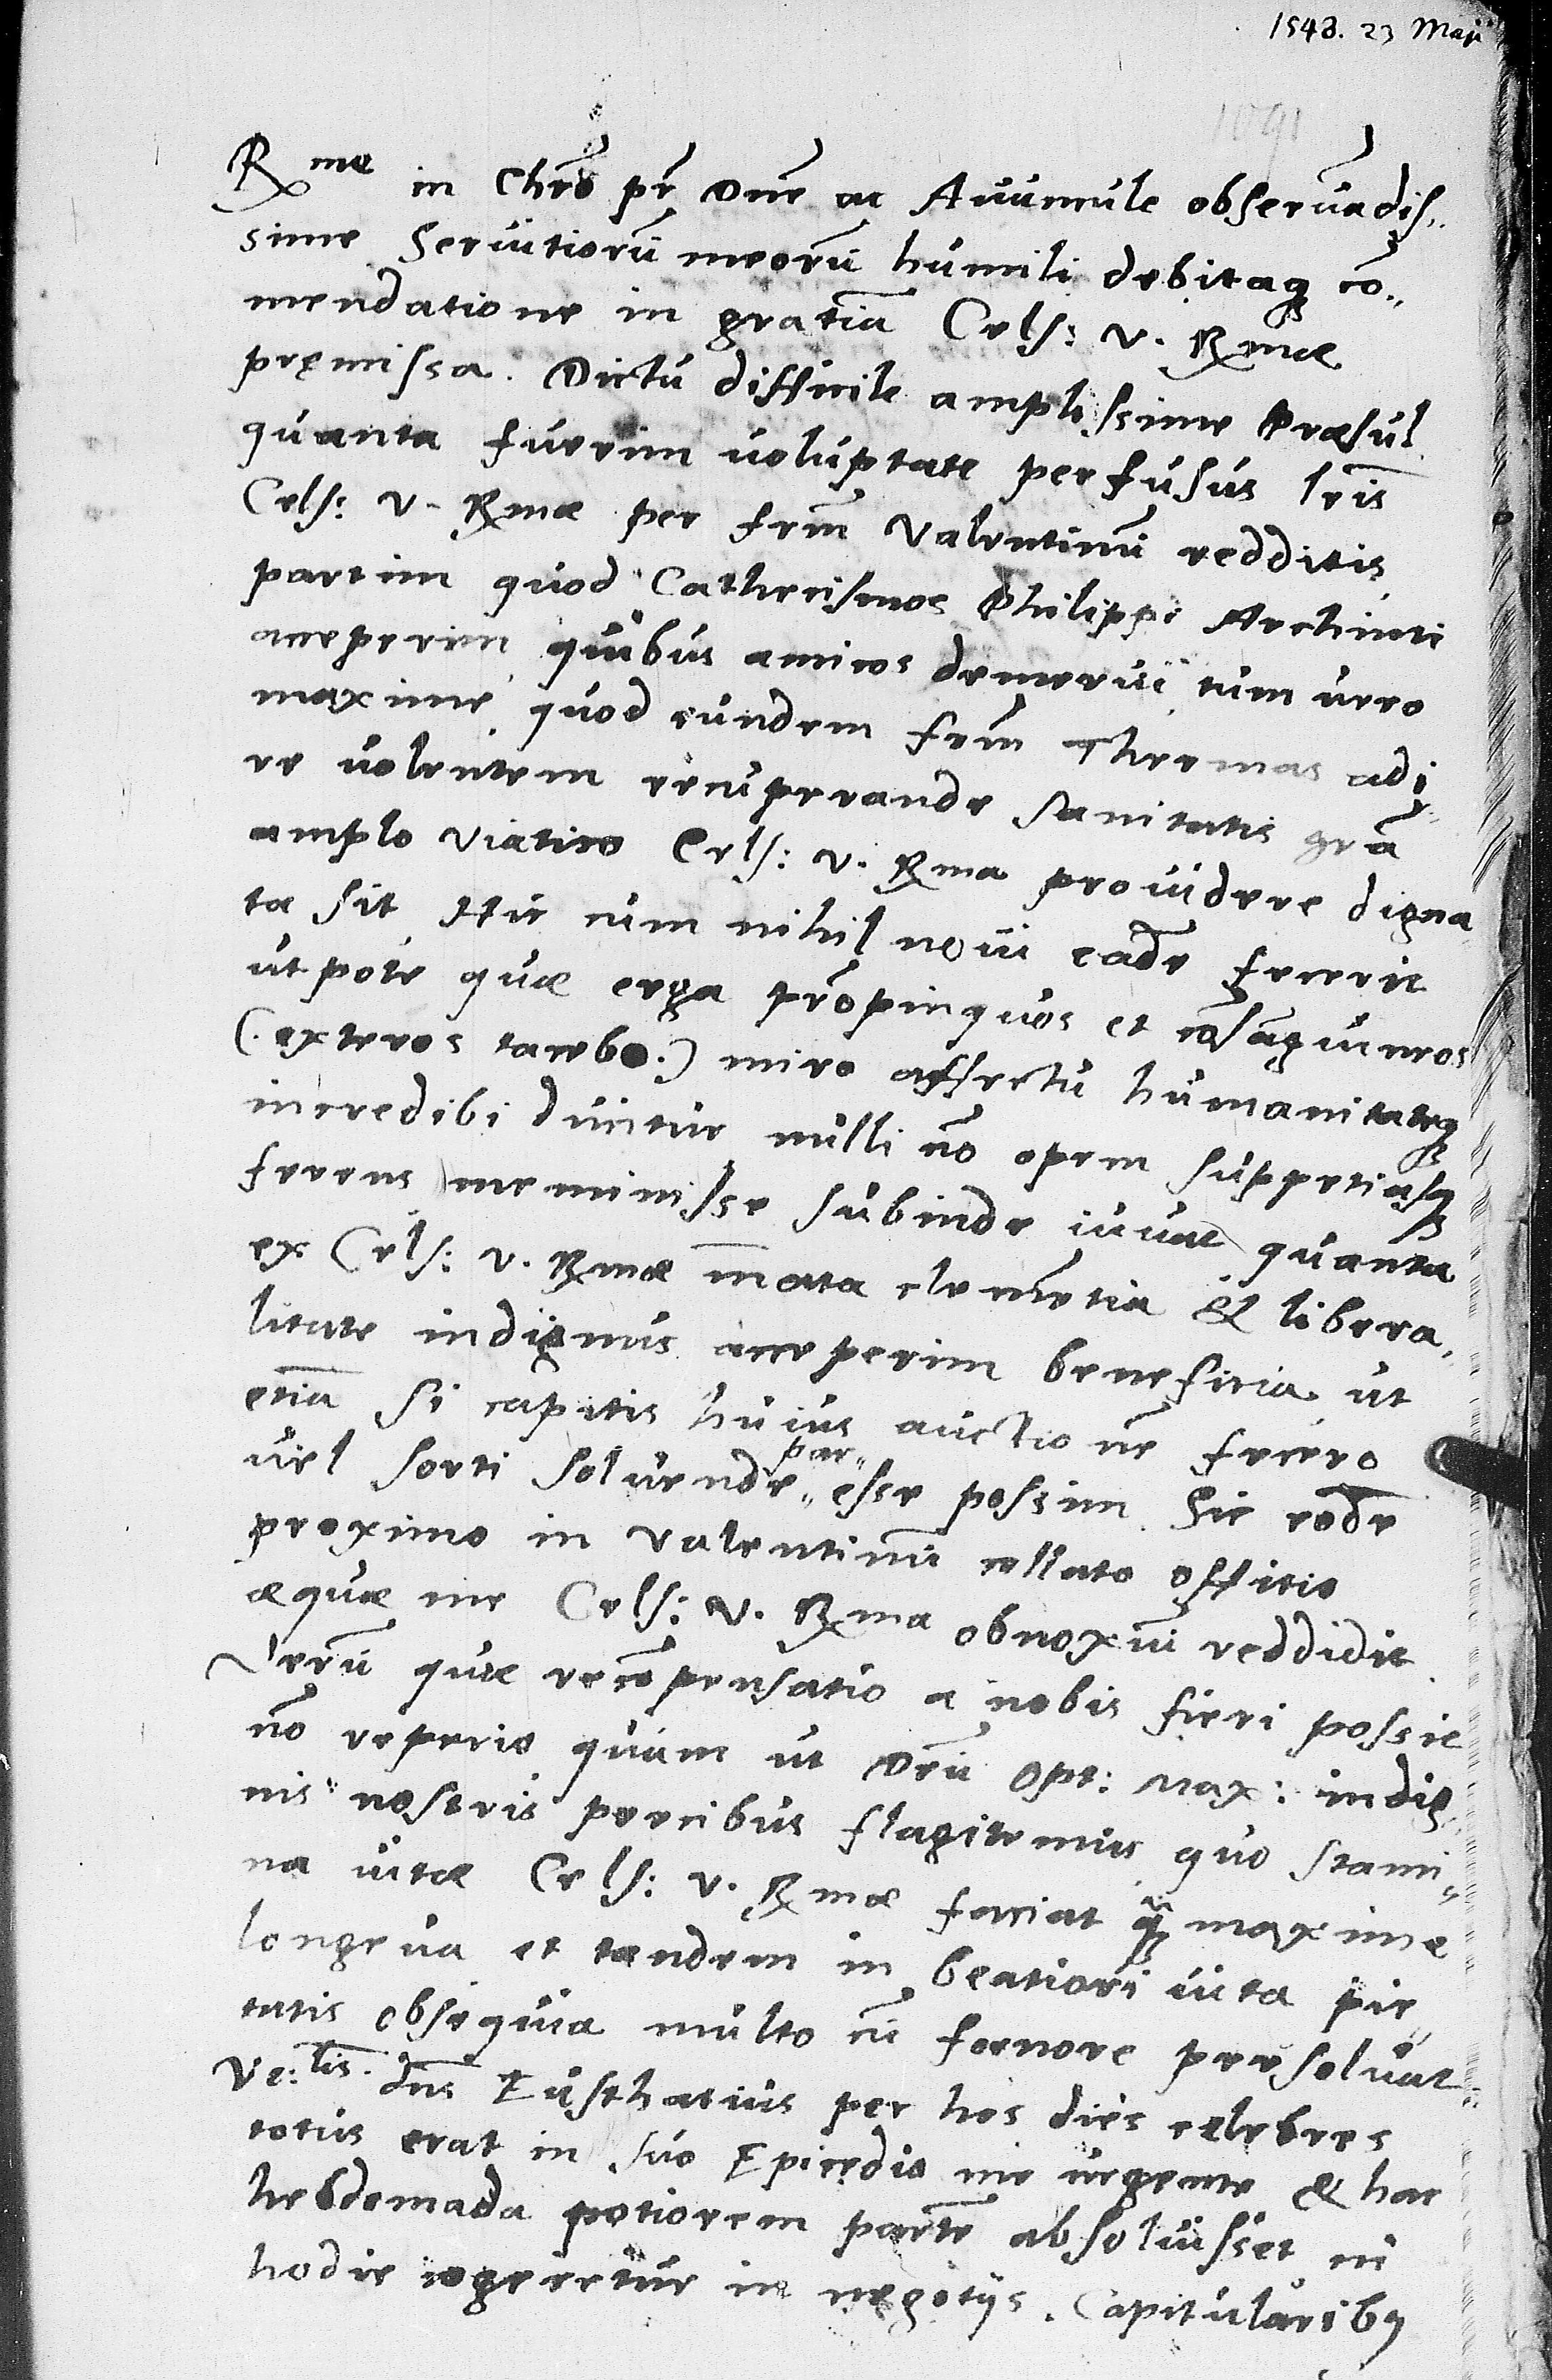 1548. 23 Maji
1091
Rme in Chrō pr̄ Dn̄e ac Auuncule obseruādis„
sime Seruitiorū meorū humili debitaq; cō„
mendatione in gratiā Cels: V. Rmae
pręmissa. Dictu difficile amplissime Praesul
quanta fuerim uoluptate perfusus lr̄is
Cels: V. Rmae per frēm Valentinū redditis,
partim quod Cathecismos Philippi Archinti
acceperim, quibus amicos demerui, tum uero
maxime, quod eundem frēm Thermas adi„
re uolentem recuperandę sanitatis gr̄a
amplo viatico Cels: V. Rma prouidere digna„
ta sit Hic cum nihil noui eadē fecerit
utpote quae erga propinquos et cōsāguineos
(:exteros tacebo:) miro affectu humanitateq;
incredibi ducitur nulli nō opem suppetiasq;
ferens, meminisse subinde iuuat, quanta
ex Cels: V. Rmae innata clemētia & libera„
litate indignus acceperim beneficia, ut
etiā si capitis huius auctionē fecero
uel sorti soluendę par„ esse possim. Sic eodē
proximo in Valentinū collato officio
aequae me Cels: V. Rma obnoxiū reddidit.
Verū quae recōpensatio a nobis fieri possit
nō reperio quam ut Deū Opt: Max: indig„
nis nostris precibus flagitemus quo stami„
na uitae Cels: V. Rmae faciat q̄ maxime
longeua et tandem in beatiori uita pie„
tatis obsequia multo cū foenore persoluat.
Ve:lis. dn̄s Eusthatius per hos dies celebres
totus erat in suo Epicedio me urgente & hac
hebdomada potiorem partē absoluisset, ni
hodie cogeretur in negotijs Capitularib9